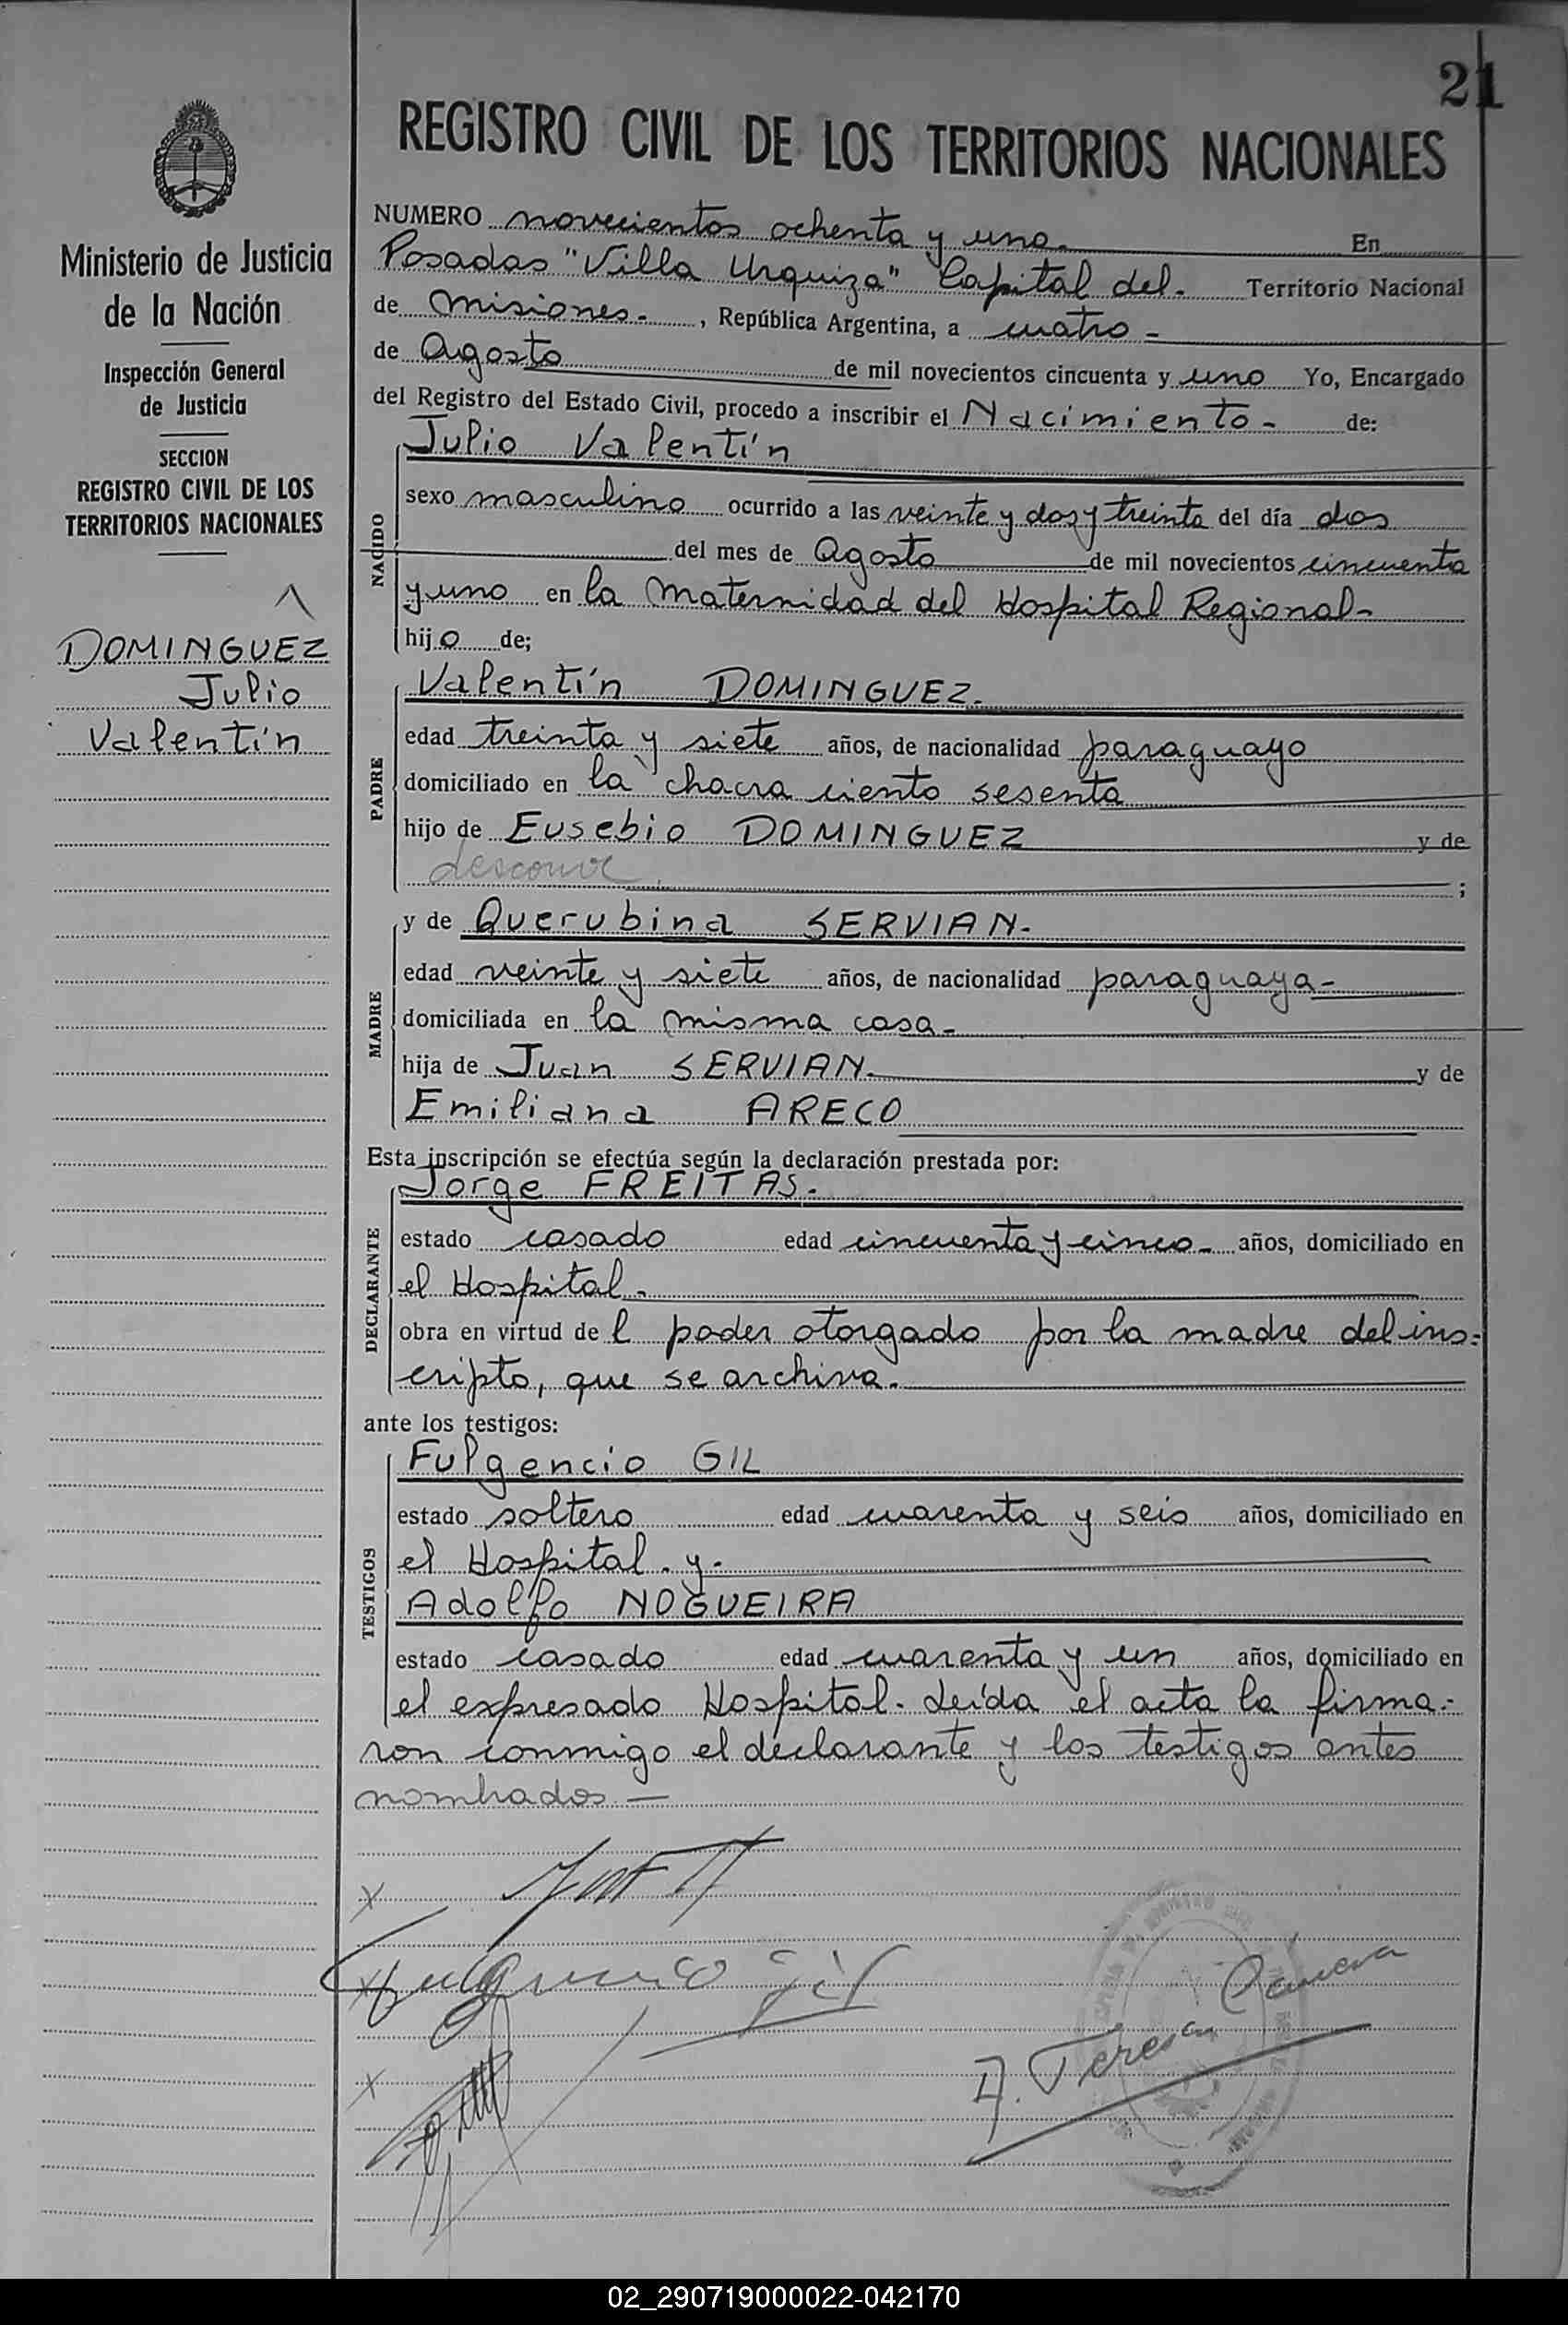 21
REGISTRO CIVIL DE LOS TERRITORIOS NACIONALES
Ministerio de Justicia
de la Nación
Inspección General
de Justicia
SECCION
REGISTRO CIVIL DE LOS
TERRITORIOS NACIONALES
DOMINGUEZ
Julio
Valentín
NUMERO novecientos ochenta y uno. En
Posadas "Villa Urquiza" Capital del. Territorio Nacional
de Misiones. , República Argentina, a cuatro -
de Agosto de mil novecientos cincuenta y uno Yo, Encargado
del Registro del Estado Civil, procedo a inscribir el Nacimiento - de:
NACIDO
Julio Valentín
sexo masculino ocurrido a las veinte y dos y treinta del día dos
del mes de Agosto de mil novecientos cincuenta
y uno en la Maternidad del Hospital Regional-
hijo de;
PADRE
Valentín DOMINGUEZ.
edad treinta y siete años, de nacionalidad paraguayo
domiciliado en la chacra ciento sesenta
hijo de Eusebio DOMINGUEZ y de
;
MADRE
y de Querubina SERVIAN-
edad veinte y siete años, de nacionalidad paraguaya-
domiciliada en la misma casa-
hija de Juan SERVIAN- y de
Emiliana ARECO
Esta inscripción se efectúa según la declaración prestada por:
DECLARANTE
Jorge FREITAS.
estado casado edad cincuenta y cinco- años, domiciliado en
el Hospital.
obra en virtud del poder otorgado por la madre del ins-
cripto, que se archiva.
ante los testigos:
TESTIGOS
Fulgencio GIL
estado soltero edad cuarenta y seis años, domiciliado en
el Hospital. y.
Adolfo NOGUEIRA
estado casado edad cuarenta y un años, domiciliado en
el expresado Hospital. Leída el acta la firma-
ron conmigo el declarante y los testigos antes
nombrados. —
x
x Fulgencio Gil
x
A. Teresa
02_290719000022-042170